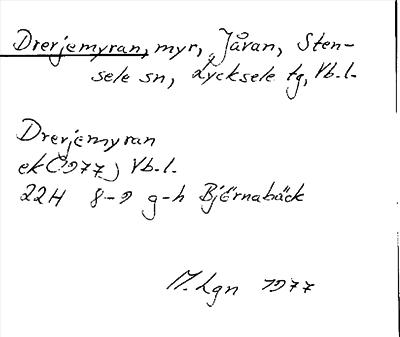 Drerjemyran, myr, Jåvan, Sten-
sele sn, Lycksele tg, Vb.l.
Drerjemyran
ek (1977) Vb.l.
22H 8-9 g-h Björnabäck
M. Lgn 1977